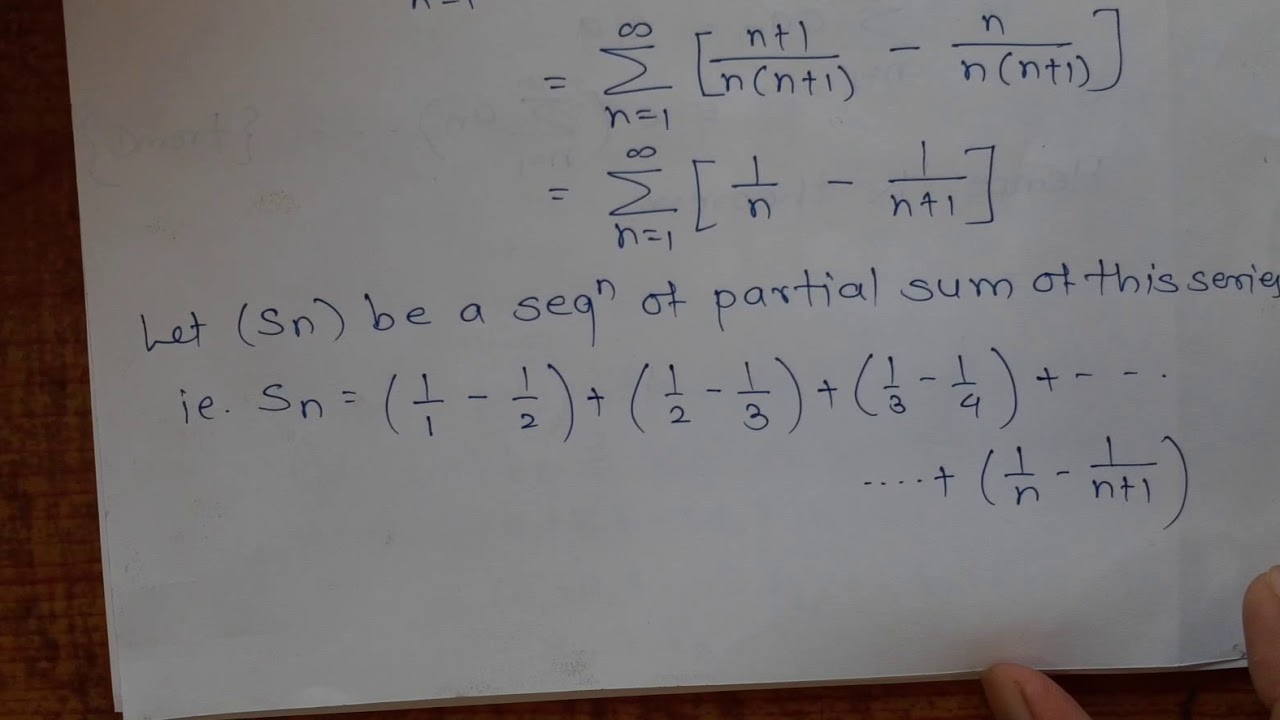 = ∞ ∑ n=1 [ n+1 / n(n+1) - n / n(n+1) ]
= ∞ ∑ n=1 [ 1/n - 1/n+1 ]
Let (Sn) be a seqⁿ of partial sum of this series
ie. Sn = (1/1 - 1/2) + (1/2 - 1/3) + (1/3 - 1/4) + - - .
.....+ (1/n - 1/n+1)